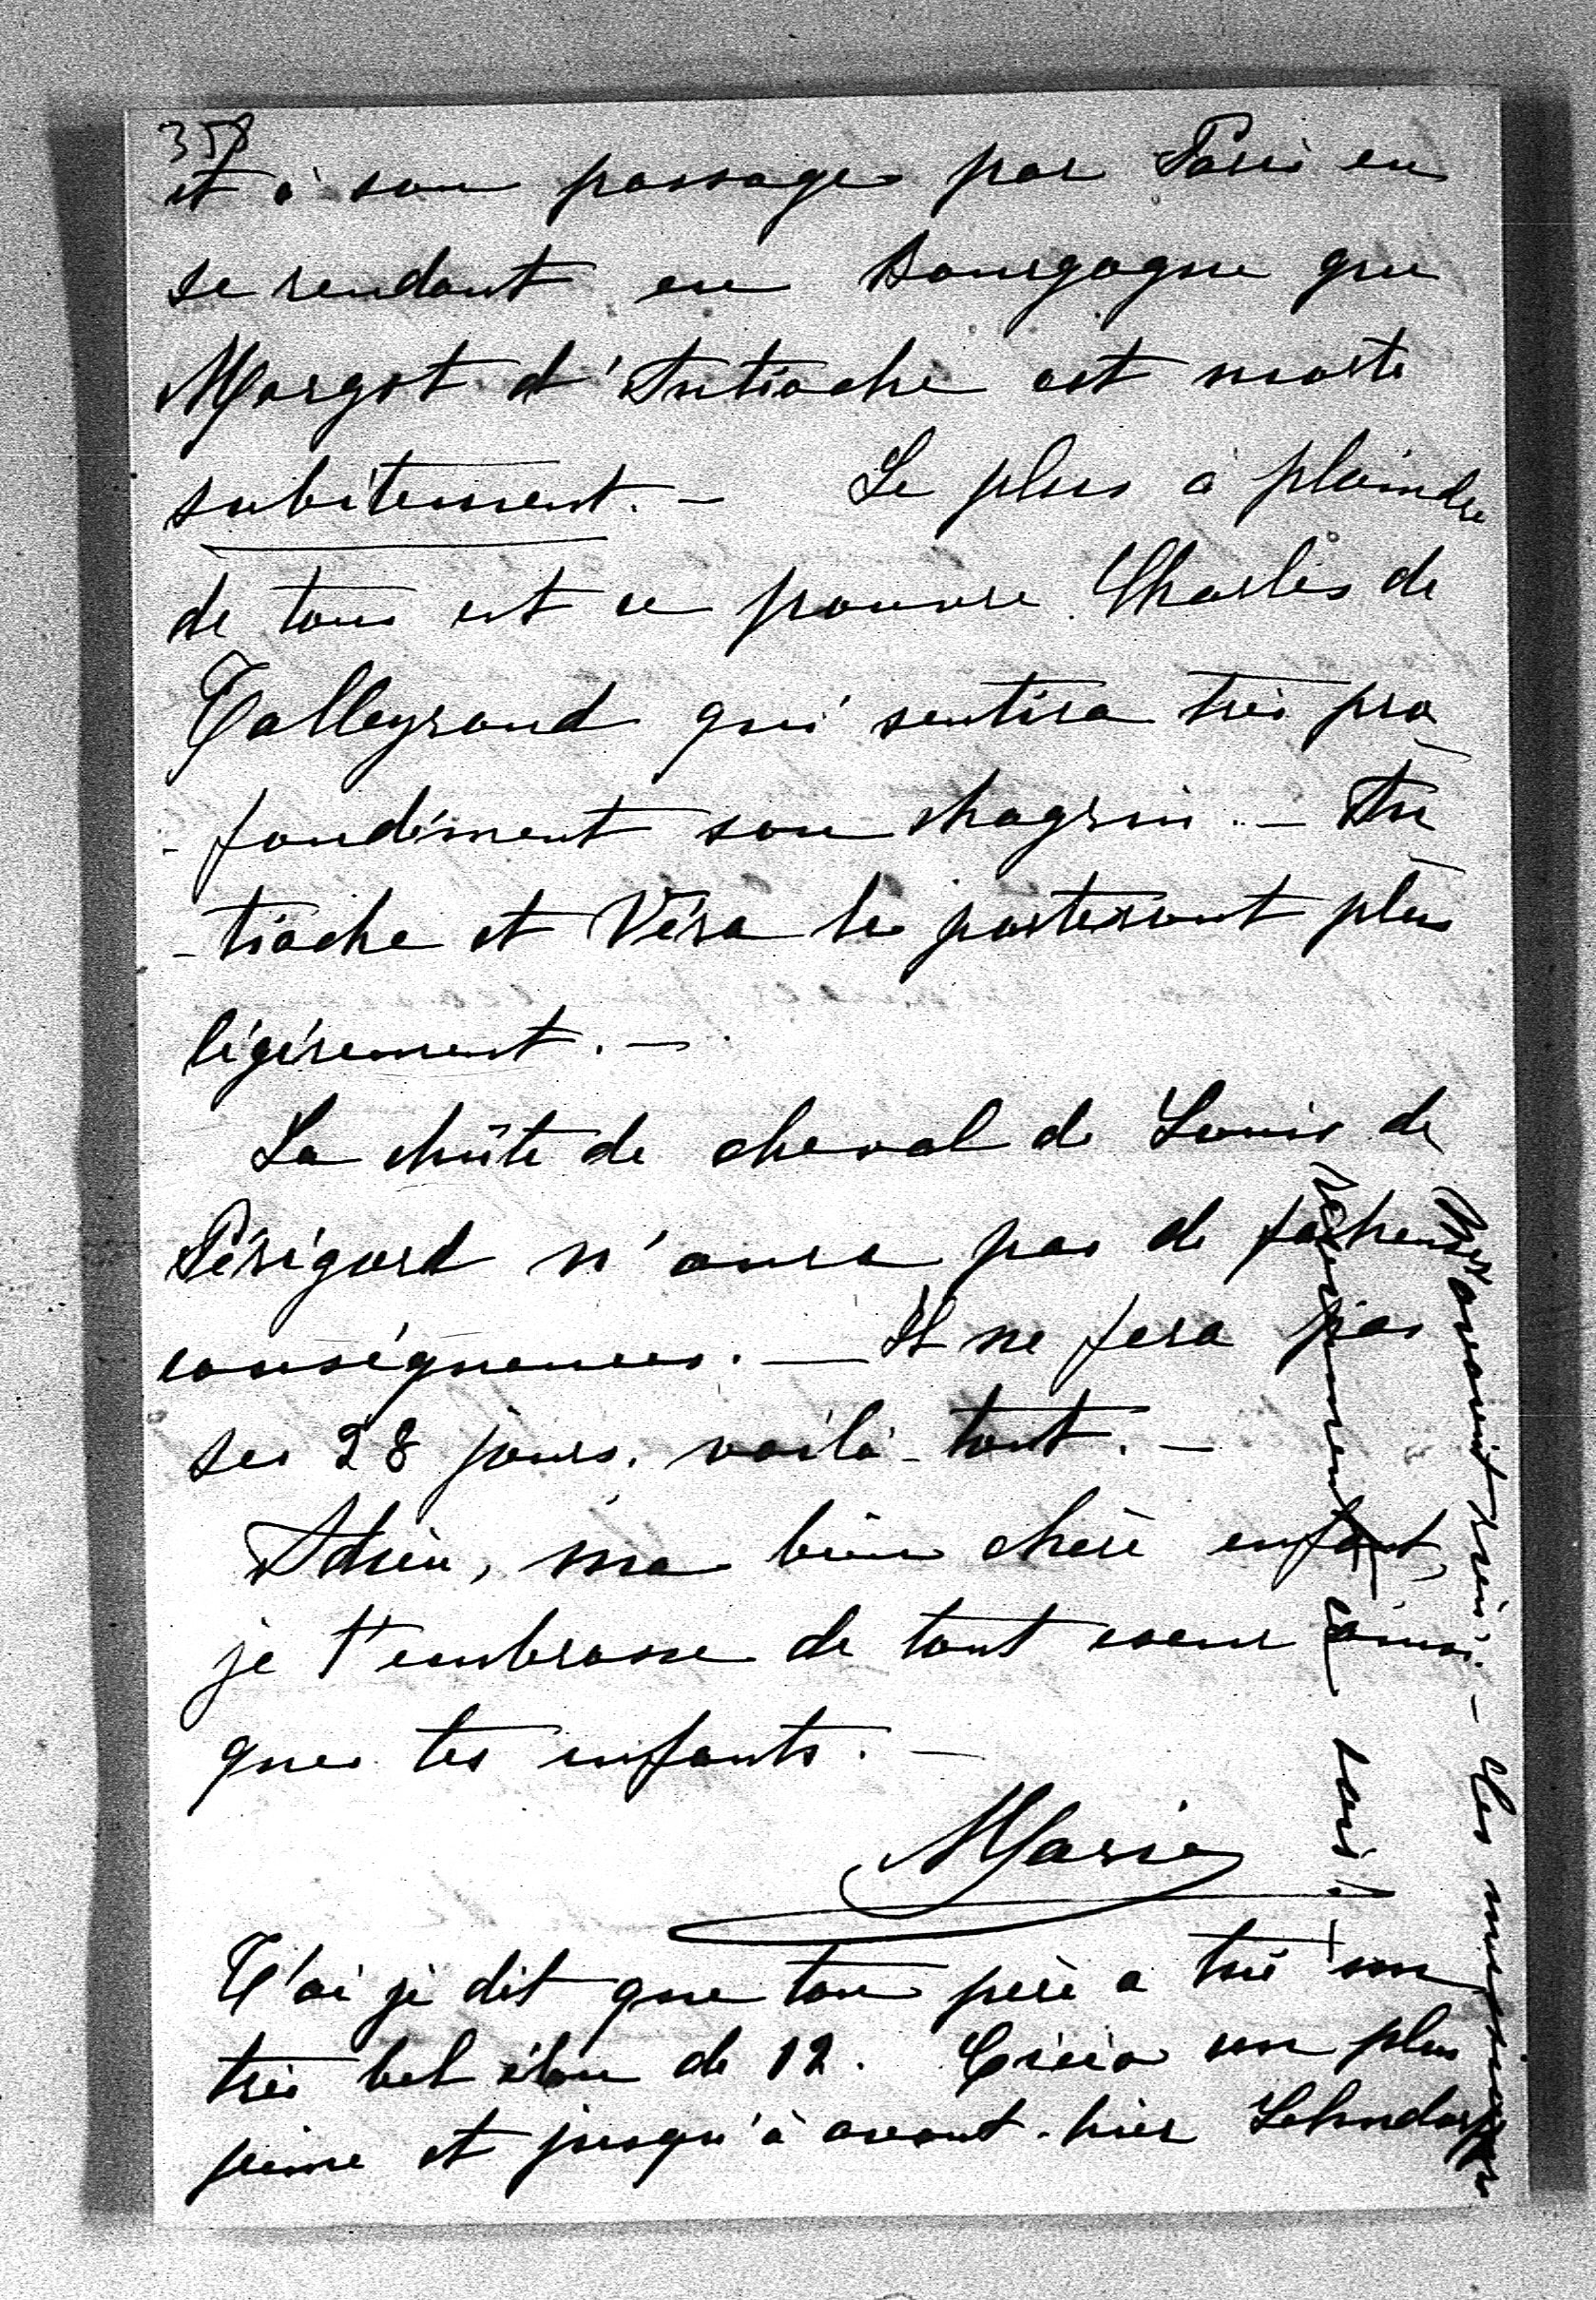 358
et à son passage par Paris en
se rendant en Bourgogne que
Margot d'Antioche est morte
subitement. - Le plus à plaindre
de tous est ce pauvre Charles de
Talleyrand qui sentira très pro
- fondément son chagrin. - An
- tioche et Véra le porteront plus
légèrement. -
La chûte de cheval de Louis de
Périgord n'aura pas de facheuses
conséquences. - Il ne fera pas
ses 28 jours, voilà tout. -
Adieu, ma bien chère enfant,
je t'embrasse de tout coeur ainsi
que tes enfants. -
Marie
T'ai je dit que ton père a tué un
très bel élan de 12. Crécia un plus
jeune et jusqu'à avant-hier Lehndorff
avait rien. - Les